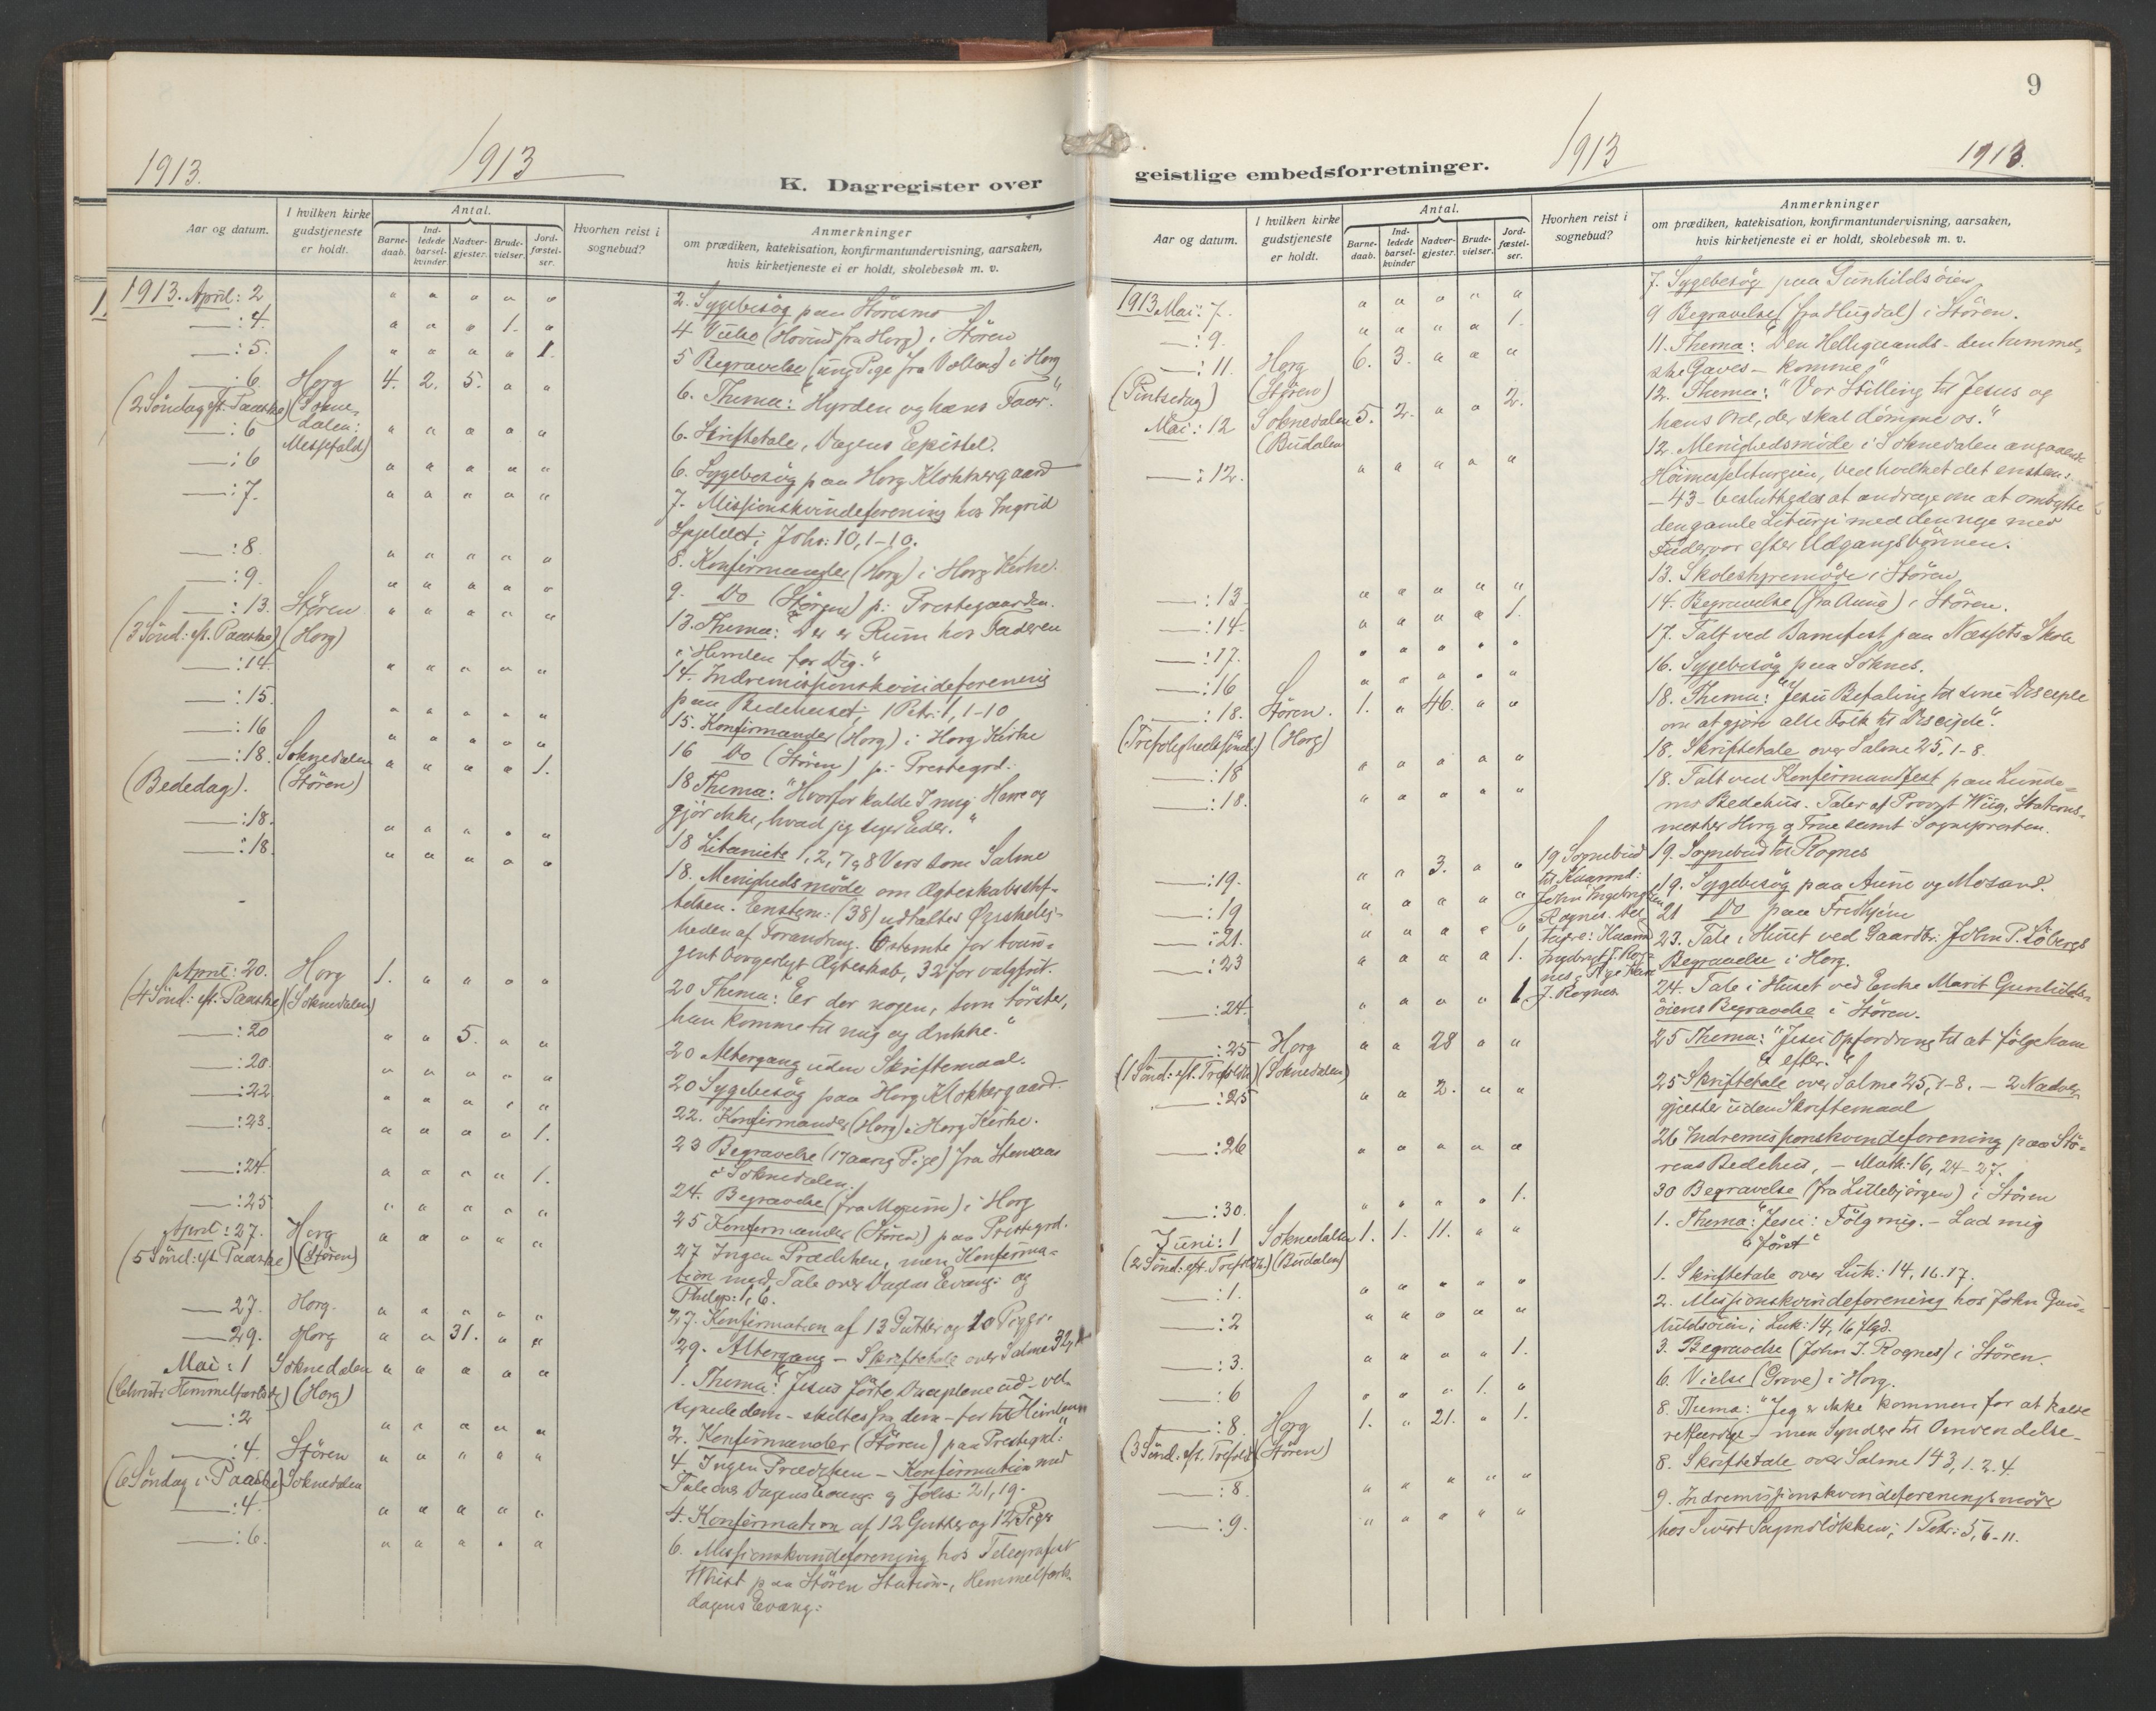 1913.
1913
K. Dagregister over
Aar og datum.
I hvilken kirke
gudstjeneste
er holdt.
Antal.
Barne-
daab.
Ind-
ledede
barsel-
kvinder
Nadver-
gjester.
Brude-
vielser.
Jord-
fæstel-
ser.
Hvorhen reist i
sognebud?
Anmerkninger
om prædiken, katekisation, konfirmantundervisning, aarsaken,
hvis kirketjeneste ei er holdt, skolebesøk m. v.
1913. April: 2 " " " " " 2. Sygebesøg paa Störesmo
—:4. " " " 1. " 4 Vielse (Hovind fra Horg) i Stören
—:5. " " " " 1. 5 Begravelse (ung Pige fra Volland) i Horg
—:6. Horg 4. 2. 5. " " 6. Thema: "Hyrden og hans Faar."
(2 Söndag eft. Paaske) (Sokne-
dalen:
Messefald)
—:6 " " " " " 6. Skriftetale, Dagens Epistel.
—:6 " " " " " 6. Sygebesøg paa Horg Klokkergaard
—:7. " " " " " 7. Missionskvindeforening hos Ingrid
Spjeldet; Johs: 10, 1-10.
—:8. " " " " " 8. Konfirmander (Horg) i Horg Kirke.
—:9. " " " " " 9. Do (Stören) p: Prestegaarden.
—:13. Stören " " " " " 13. Thema: "Der er Rum hos Faderen
(3 Sönd: eft. Paaske) (Horg)
i Himlen for Dig."
—:14. " " " " " 14. Indremissionskvindeforening
paa Bedehuset; 1 Petr: 1, 1-10
—:15. " " " " " 15. Konfirmander (Horg) i Horg Kirke
—:16 " " " " " 16 Do (Stören) p: Prestegrd:
—:18. Soknedalen " " " " 1. 18 Thema: "Hvorfor kalde I mig Herre og
(Bededag). (Stören)
gjör ikke, hvad jeg siger Eder."
—:18. " " " " " 18 Litaniets 1, 2, 7 & 8 Vers som Salme
—:18. " " " " " 18. Menighedsmöde om Ægteskabsstif-
telsen. Enstem: (38) udtaltes Ønskelig-
heden af Forandring. 6 stemte for tvun-
gent borgerligt Ægteskab, 32 for valgfrit.
April: 20. Horg 1. " " " " 20 Thema: "Er der nogen, som törster,
(4 Sönd: eft. Paaske) (Soknedalen)
han komme til mig og drikke."
—:20 " " 5. " " 20 Altergang uden Skriftemaal.
—:20. " " " " " 20 Sygebesøg paa Horg Klokkergaard.
—:22 " " " " " 22. Konfirmander (Horg) i Horg Kirke.
—:23. " " " " 1. 23 Begravelse (17 aarig Pige) fra Stensaas
i Soknedalen.
—:24. " " " " 1. 24. Begravelse (fra Mo) i Horg
—:25 " " " " " 25 Konfirmander (Stören) paa Prestegrd.
April: 27. Horg " " " " " 27 Ingen Prædiken, men Konfirma-
(5 Sönd: eft. Paaske) (Stören)
tion med Tale over Dagens Evang: og
Philip: 1, 6.
—27. Horg. " " " " " 27. Konfirmation af 13 Gutter og 20 Piger.
—29. Horg " " 31. " " 29. Altergang – Skriftetale over Salme 32,
Mai: 1 Soknedalen " " " " " 1. Thema: "Jesus förte Disciplene ud – vel-
(Christi Himmelfartsdg) (Horg)
signede dem – skiltes fra dem – for til Himlen"
—:2 " " " " " 2. Konfirmander (Stören) paa Prestegrd:
—:4. Stören " " " " " 4. Ingen Prædiken – Konfirmation med
(6 Söndag i Paaske) Soknedalen
Tale over Dagens Evang: og Johs: 21, 19.
—:4. " " " " " 4. Konfirmation af 12 Gutter og 12 Piger
—:6. " " " " " 6. Missionskvindeforening hos Telegrafist
Whist paa Stören Station, Himmelfarts-
dagens Evang:
9
1913
1913.
geistlige embedsforretninger.
Aar og datum.
I hvilken kirke
gudstjeneste
er holdt.
Antal.
Barne-
daab.
Ind-
ledede
barsel-
kvinder
Nadver-
gjester.
Brude-
vielser.
Jord-
fæstel-
ser.
Hvorhen reist i
sognebud?
Anmerkninger
om prædiken, katekisation, konfirmantundervisning, aarsaken,
hvis kirketjeneste ei er holdt, skolebesøk m. v.
1913 Mai: 7. " " " " " 7. Sygebesøg paa Gunhildsöien
—:9. " " " " 1. 9 Begravelse (fra Hugdal) i Stören.
—:11. Horg 6. 3. " " " 11. Thema: "Den Helligaands – den himmel-
(Pintsedag) (Stören)
ske Gaves – Komme"
Mai: 12 Soknedalen 5. 2. " " 2. 12. Thema: "Vor Stilling til Jesus og
(Budalen
hans Ord, der skal dömme os."
—:12. " " " " " 12. Menighedsmöde i Soknedalen angaaende
Höimesseliturgien, ved hvilket det enstem:
– 43 – besluttedes at andrage om at ombytte
den gamle Liturgi med den nye med
Fadervor efter Udgangsbönnen.
—:13 " " " " " 13. Skolestyremöde i Stören
—:14. " " " " 1. 14. Begravelse (fra Aune) i Stören.
—:17. " " " " " 17. Talt ved Barnefest paa Næssets Skole
—:16 " " " " " 16. Sygebesøg paa Soknes.
—:18. Stören. 1. " 46. " " 18. Thema: "Jesu Befaling til sine Disciple
(Trefoldighedssönd:) (Horg)
om at gjöre alle Folk til Disciple."
—:18 " " " " " 18. Skriftetale over Salme 25, 1-8.
—:18. " " " " " 18. Talt ved Konfirmandfest paa Lunde-
mo Bedehus. Taler af Provst Wiig, Stations-
mester Horg og Frue samt Sognepresten.
—:19. " " 3. " " 19 Sognebud 19. Sognebud til Rognes
til Kaarmd:
—:19 " " " " " John Ingebrigtsen 19. Sygebesøg paa Aune og Mosand.
Rognes. Del-
—:21. " " " " " tagere: Kaarmd 21 Do paa Fredhjem
—:23 " " " " 1. Ingebrigt J. Rog- 23. Tale i Huset ved Gaardbr: John P. Löbergs
nes, Pige
J. Rognes.
Begravelse i Horg.
—:24. " " " " 1. 24. Tale i Huset ved Enke Marit Gunhilds-
öiens Begravelse i Stören.
—:25 Horg " " 28 " " 25 Thema: "Jesu Opfordring til at fölge ham
(1 Sönd: eft. Trefoldh) (Soknedalen)
efter."
—:25 " " 2. " " 25 Skriftetale over Salme 25, 1-8. – 2 Nadver-
gjester uden Skriftemaal
—:26 " " " " " 26 Indremissionskvindeforening paa Stö-
rens Bedehus, – Math: 16, 24-27.
—:30. " " " " 1. 30 Begravelse (fra Littebjörgen) i Stören
Juni: 1 Soknedalen 1. 1. 11. " " 1. Thema: "Jesu: Fölg mig. – Lad mig
(2 Sönd: eft. Trefoldh.) (Budalen)
"Först"
—:1. " " " " " 1. Skriftetale over Luk: 14, 16.17.
—:2 " " " " " 2. Missionskvindeforening hos John Gun-
hildsöien; Luk: 14, 16 flgd.
—:3. " " " " 1. 3. Begravelse (John I. Rognes) i Stören.
—:6 " " " 1. " 6. Vielse (Grove) i Horg.
—:8. Horg 1. " 21. " 1. 8. Thema: "Jeg er ikke kommen for at kalde
(3 Sönd: eft. Trefoldh) (Stören)
retfærdige – men Syndere til Omvendelse –
—:8. " " " " " 8. Skriftetale over Salme 143, 1.2.4.
—:9. " " " " " 9. Indremissionskvindeforeningsmöde
hos Sivert Sagmoløkken; 1 Petr: 5, 6-11.